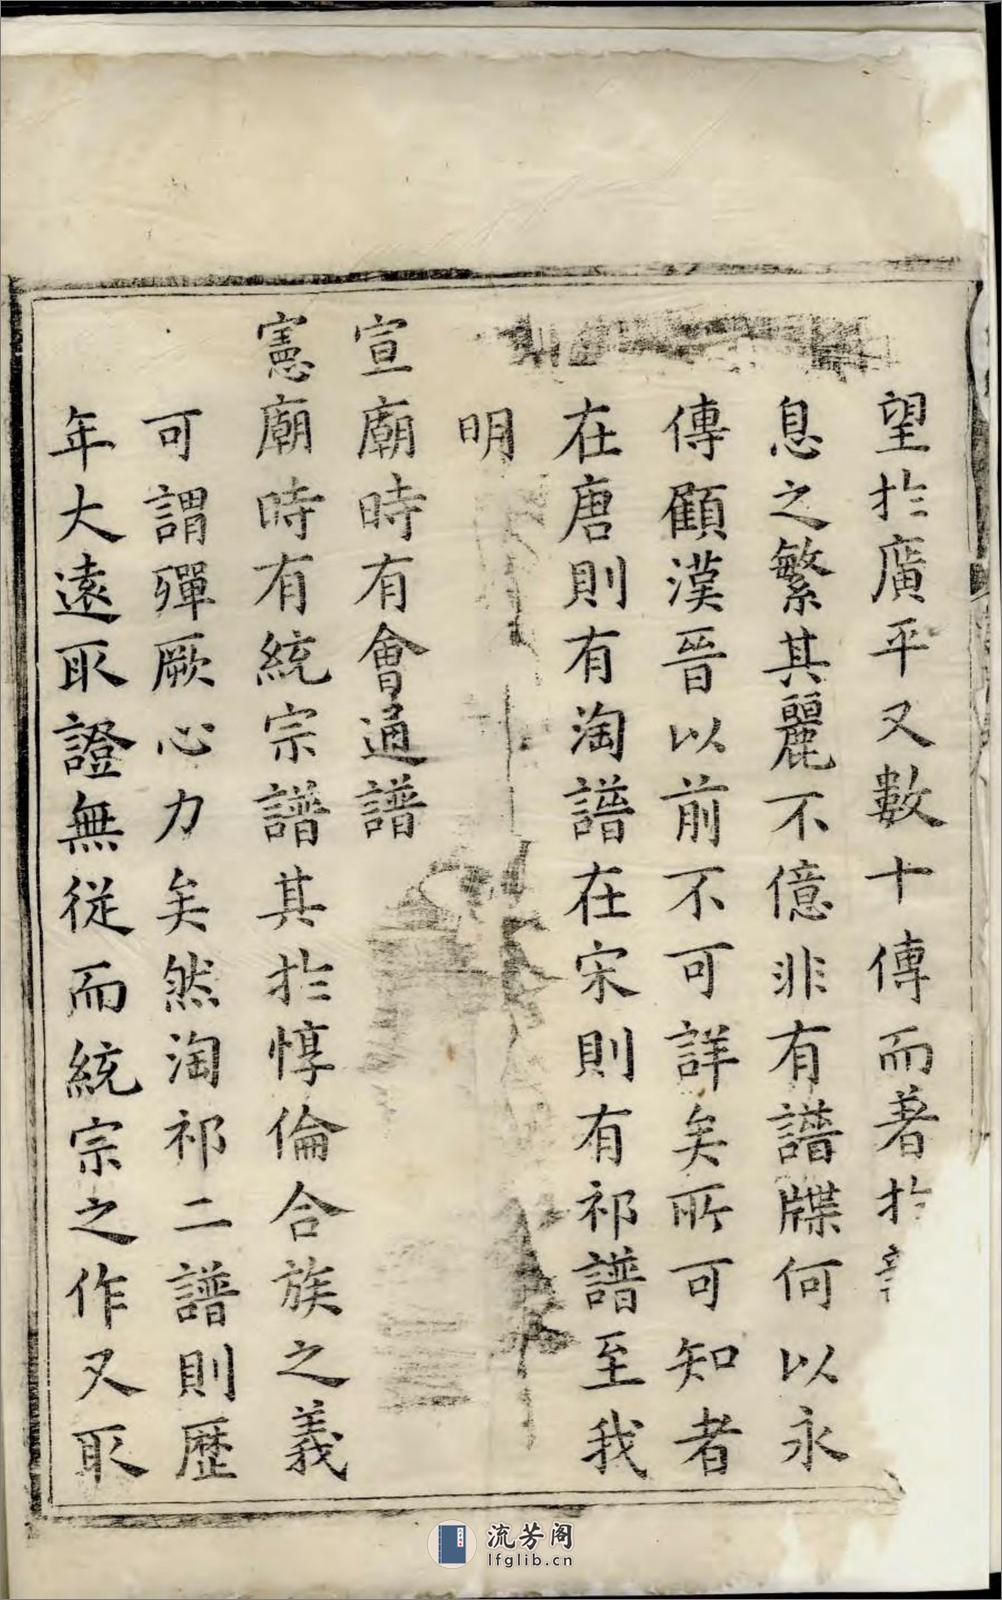 望於廣平又數十傳而著於
息之繁其麗不億非有譜牒何以永
傳顧漢晉以前不可詳矣所可知者
在唐則有淘譜在宋則有祁譜至我
明
宣廟時有會通譜
憲廟時有統宗譜其於惇倫合族之義
可謂殫厥心力矣然淘祁二譜則歷
年大遠取證無從而統宗之作又取
流芳阁
lfglib.cn